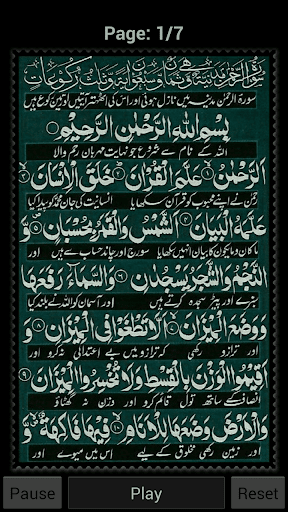 Page: 1/7
سُوْرَةُ الرَّحْمٰنِ مَدَنِيَّةٌ وَّهِيَ ثَمَانٌ وَّسَبْعُوْنَ اٰيَةً وَّثَلٰثُ رُكُوْعَاتٍ
سورۃ الرحمٰن مدینہ میں نازل ہوئی اور اس کی اٹھتر آیتیں اور تین رکوع ہیں
بِسْمِ اللّٰهِ الرَّحْمٰنِ الرَّحِيْمِ
اللہ کے نام سے شروع جو نہایت مہربان رحم والا
اَلرَّحْمٰنُ ۱ عَلَّمَ الْقُرْاٰنَ ۲ خَلَقَ الْاِنْسَانَ ۳
رحمٰن نے اپنے محبوب کو قرآن سکھایا انسانیت کی جان محمد کو پیدا کیا
عَلَّمَهُ الْبَيَانَ ۴ اَلشَّمْسُ وَالْقَمَرُ بِحُسْبَانٍ ۵ وَّ
ماکان ومایکون کا بیان انہیں سکھایا سورج اور چاند حساب سے ہیں اور
النَّجْمُ وَالشَّجَرُ يَسْجُدٰنِ ۶ وَالسَّمَآءَ رَفَعَهَا
سبزے اور پیڑ سجدہ کرتے ہیں اور آسمان کو اللہ نے بلند کیا
وَوَضَعَ الْمِيْزَانَ ۷ اَلَّا تَطْغَوْا فِى الْمِيْزَانِ ۸ وَ
اور ترازو رکھی کہ ترازو میں بے اعتدالی نہ کرو اور
اَقِيْمُوا الْوَزْنَ بِالْقِسْطِ وَلَا تُخْسِرُوا الْمِيْزَانَ ۹
انصاف کے ساتھ تول قائم کرو اور وزن نہ گھٹاؤ
وَالْاَرْضَ وَضَعَهَا لِلْاَنَامِ ۱۰ فِيْهَا فَاكِهَةٌ وَّ
اور زمین رکھی مخلوق کے لیے اس میں میوے اور
Pause
Play
Reset